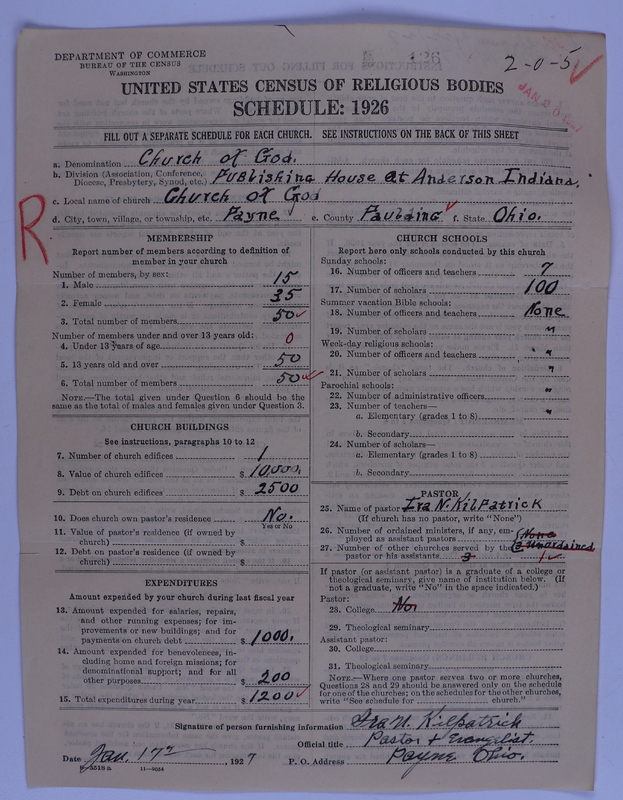 DEPARTMENT OF COMMERCE
BUREAU OF THE CENSUS
WASHINGTON
2-0-5
UNITED STATES CENSUS OF RELIGIOUS BODIES
SCHEDULE: 1926
FILL OUT A SEPARATE SCHEDULE FOR EACH CHURCH. SEE INSTRUCTIONS ON THE BACK OF THIS SHEET
a. Denomination Church of God.
b. Division (Association, Conference, Diocese, Presbytery, Synod, etc.) Publishing House at Anderson Indiana.
c. Local name of church Church of God
d. City, town, village, or township, etc. Payne e. County Paulding f. State Ohio.
R
MEMBERSHIP
Report number of members according to definition of
member in your church
Number of members, by sex:
1. Male 15
2. Female 35
3. Total number of members 50
Number of members under and over 13 years old:
4. Under 13 years of age 0
5. 13 years old and over 50
6. Total number of members 50
NOTE.—The total given under Question 6 should be
same as the total of males and females given under Question 3.
CHURCH BUILDINGS
See instructions, paragraphs 10 to 12
7. Number of church edifices 1
8. Value of church edifices $ 10,000.
9. Debt on church edifices $ 2500
10. Does church own pastor's residence No.
Yes or No
11. Value of pastor's residence (if owned by
church) $
12. Debt on pastor's residence (if owned by
church) $
EXPENDITURES
Amount expended by your church during last fiscal year
13. Amount expended for salaries, repairs,
and other running expenses; for im-
provements or new buildings; and for
payments on church debt $ 1000.
14. Amount expended for benevolences, in-
cluding home and foreign missions; for
denominational support; and for all
other purposes $ 200
15. Total expenditures during year $ 1200
CHURCH SCHOOLS
Report here only schools conducted by this church
Sunday schools:
16. Number of officers and teachers 7
17. Number of scholars 100
Summer vacation Bible schools:
18. Number of officers and teachers None
19. Number of scholars "
Week-day religious schools:
20. Number of officers and teachers "
21. Number of scholars "
Parochial schools:
22. Number of administrative officers "
23. Number of teachers—
a. Elementary (grades 1 to 8) "
b. Secondary
24. Number of scholars—
a. Elementary (grades 1 to 8)
b. Secondary
PASTOR
25. Name of pastor Ira N. Kilpatrick
(If church has no pastor, write "None")
26. Number of ordained ministers, if any, em-
ployed as assistant pastors None
27. Number of other churches served by the
pastor or his assistants 3 1
If pastor (or assistant pastor) is a graduate of a college or
theological seminary, give name of institution below. (If
not a graduate, write "No" in the space indicated.)
Pastor:
28. College No
29. Theological seminary
Assistant pastor:
30. College
31. Theological seminary
NOTE.—Where one pastor serves two or more churches,
Questions 28 and 29 should be answered only on the schedule
for one of the churches; on the schedules for the other churches,
write "See schedule for church."
Signature of person furnishing information Ira N. Kilpatrick
Official title Pastor & Evangelist.
Date Jan. 17th, 1927 P. O. Address Payne Ohio.
8-5518a 11-9054